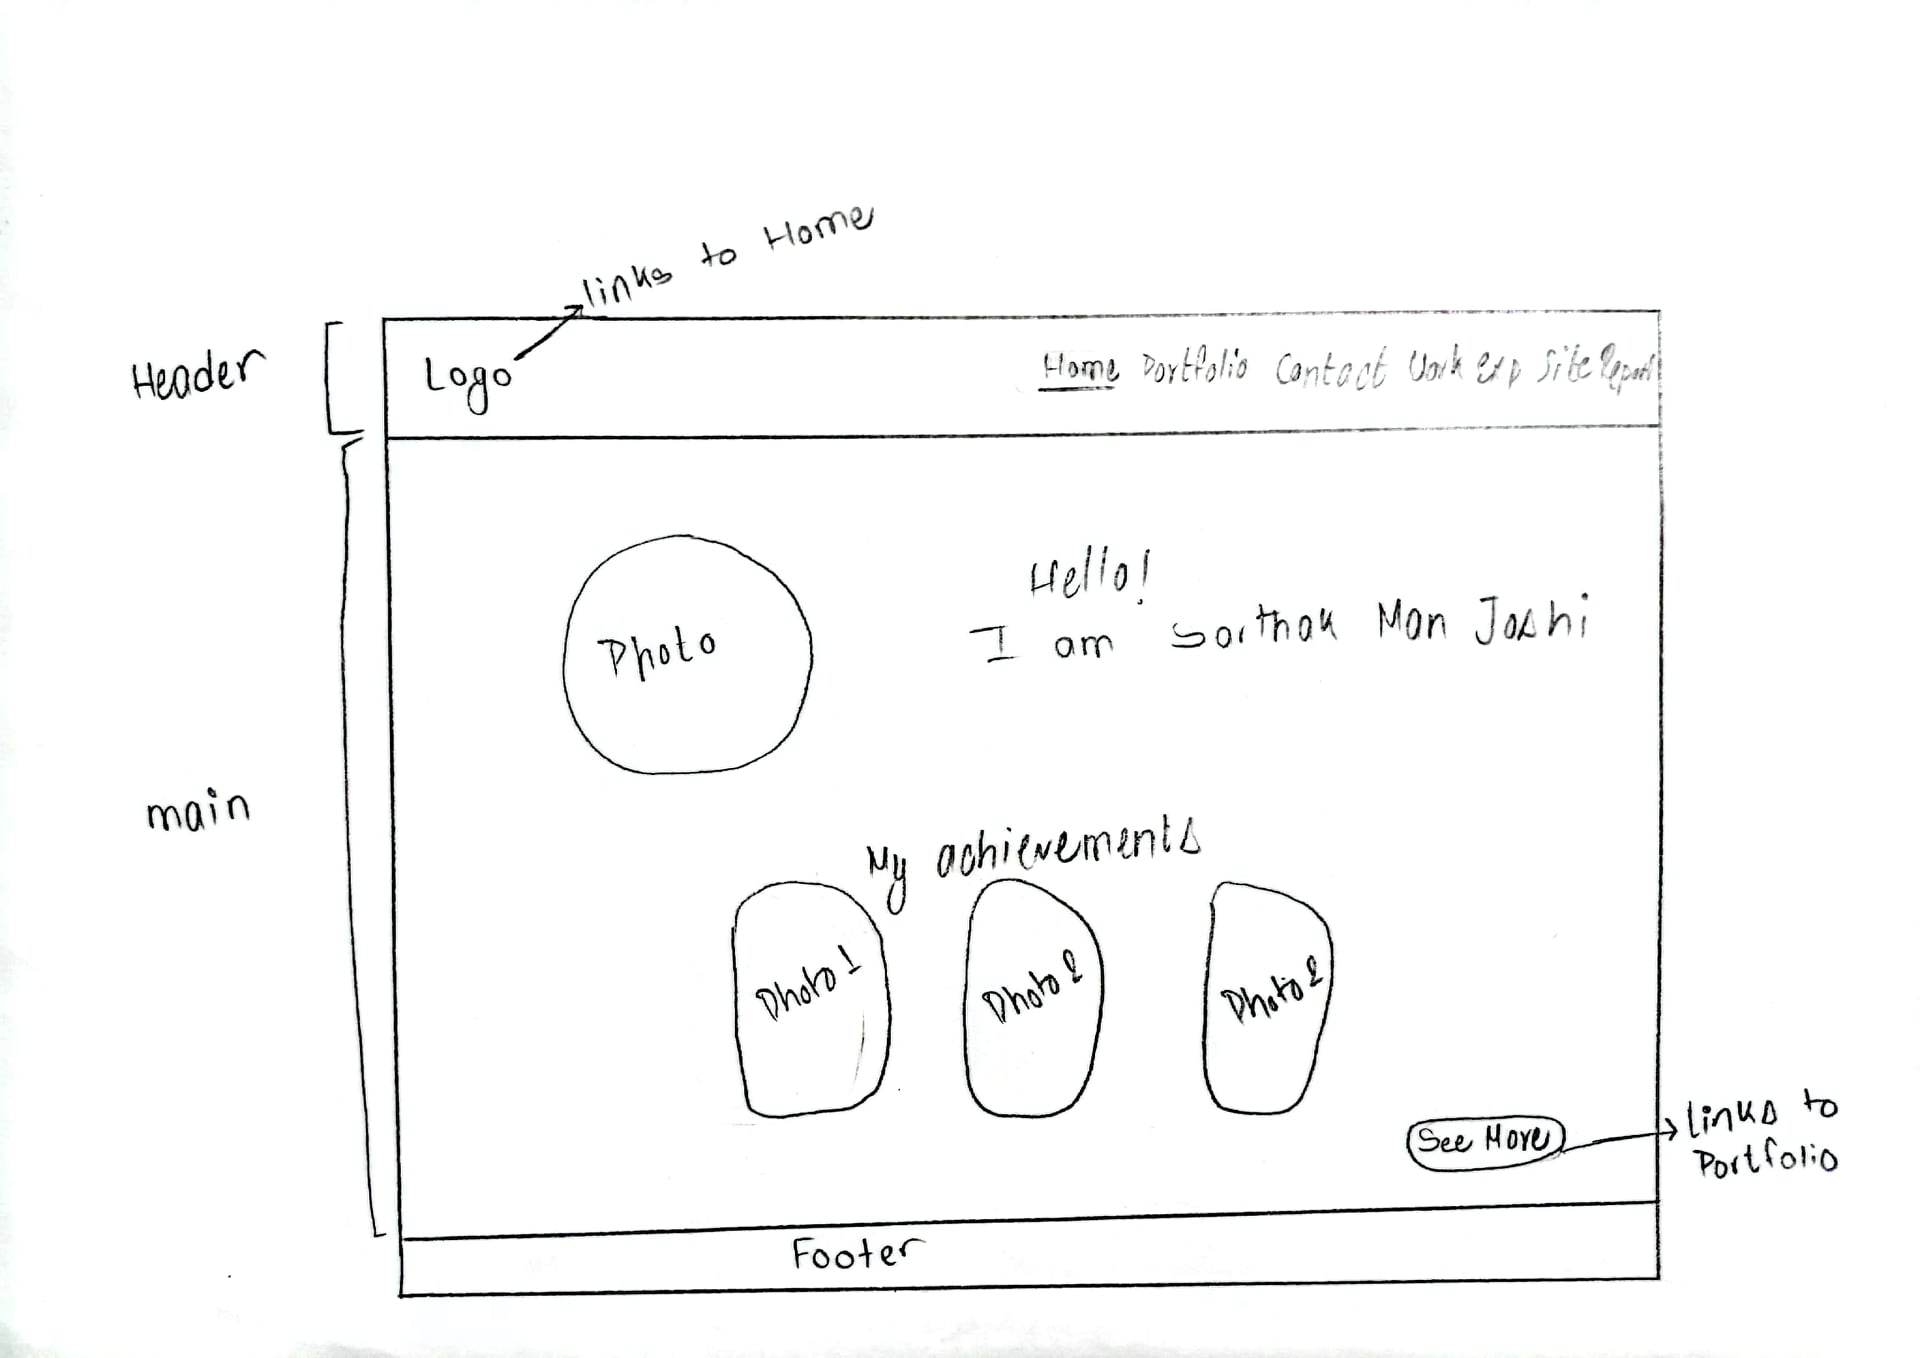 links to Home
Header
Logo
Home Portfolio Contact Work Exp Site Report
Photo
Hello!
I am Sarthak Man Joshi
main
My achievements
Photo 1
Photo 2
Photo 2
See More
links to
Portfolio
Footer